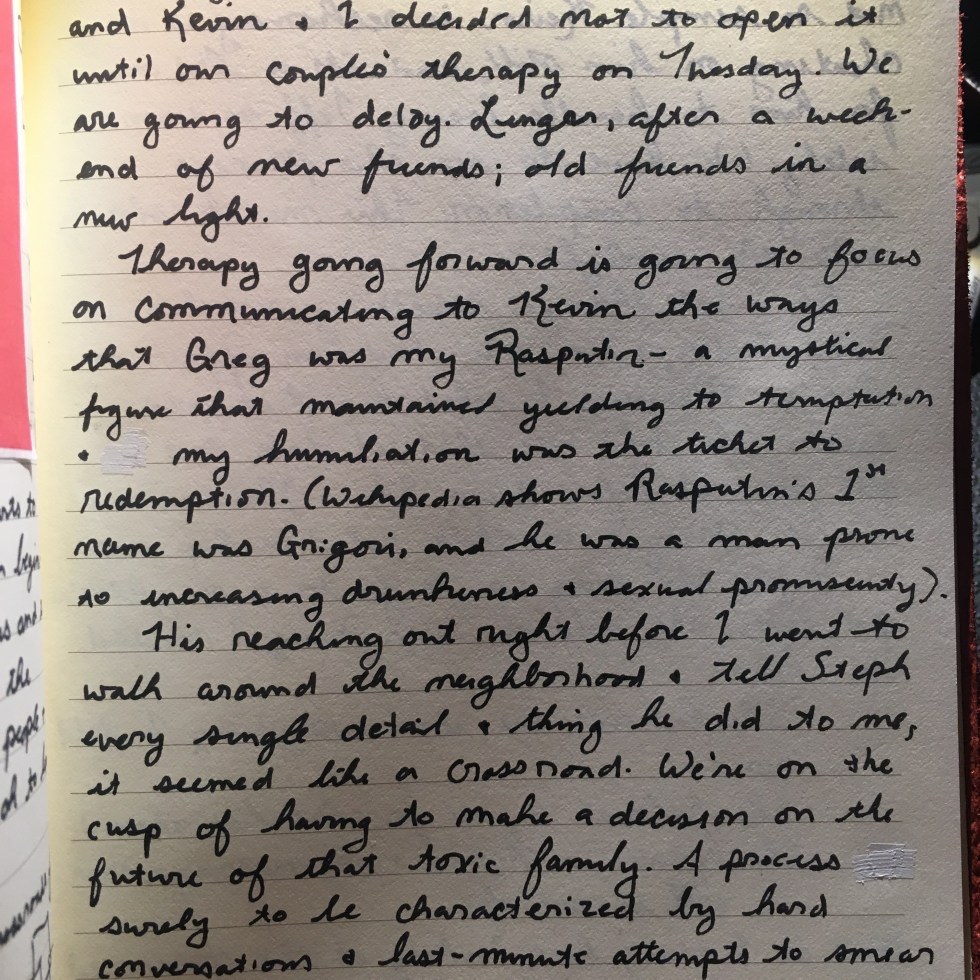 and Kevin & I decided not to open it
until our couples' therapy on Tuesday. We
are going to delay. Linger, after a week-
end of new friends; old friends in a
new light.
Therapy going forward is going to focus
on communicating to Kevin the ways
that Greg was my Rasputin - a mystical
figure that maintained yielding to temptation
& my humiliation was the ticket to
redemption. (Wikipedia shows Rasputin's 1st
name was Grigori, and he was a man prone
to increasing drunkeness & sexual promiscuity).
His reaching out right before I went to
walk around the neighborhood & tell Steph
every single detail & thing he did to me,
it seemed like a crossroad. We're on the
cusp of having to make a decision on the
future of that toxic family. A process
surely to be characterized by hard
conversations & last-minute attempts to smear
the